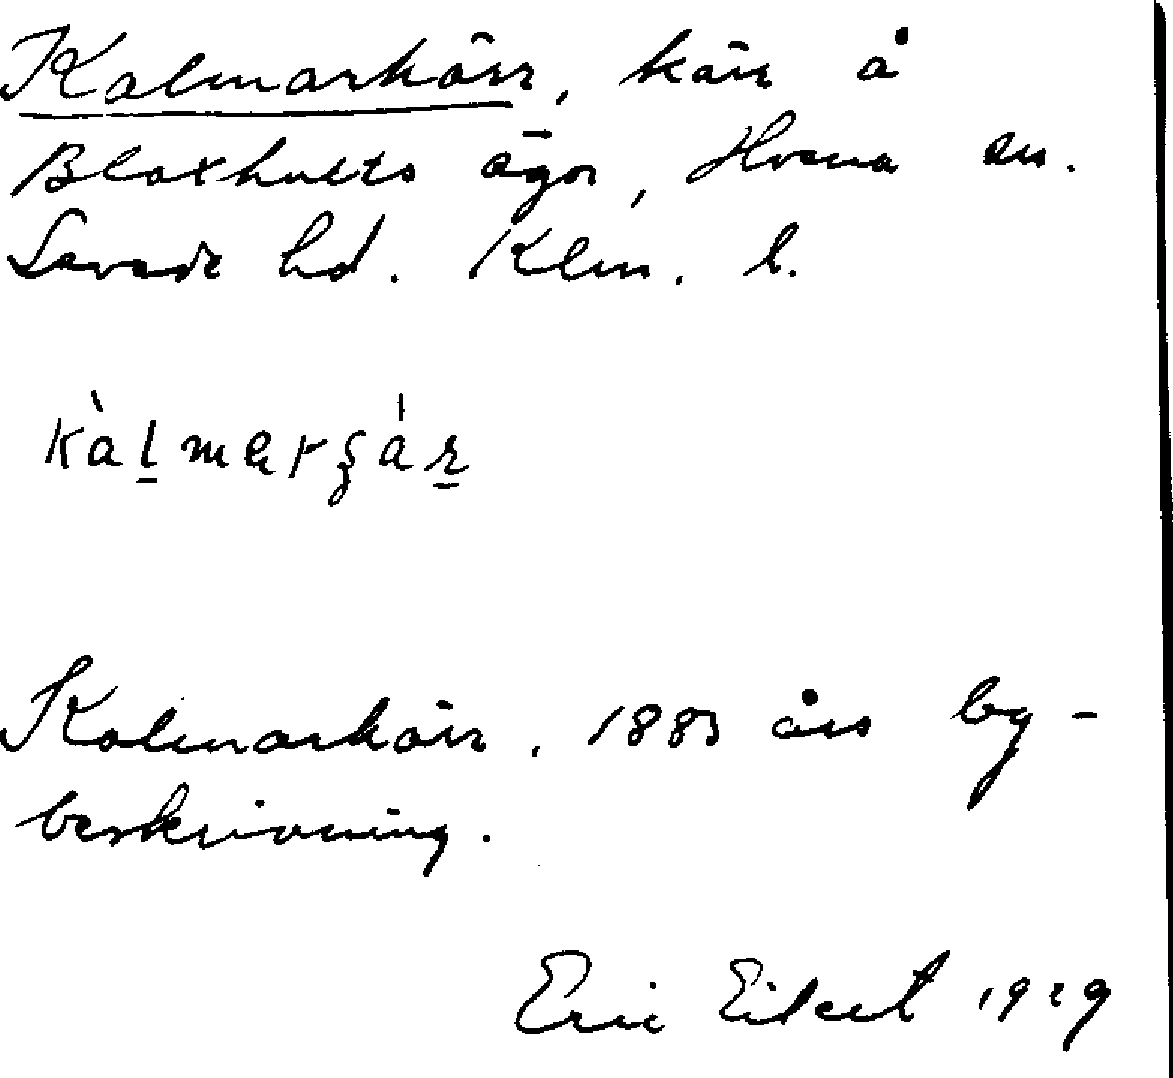 Kalmarkärr, kärr å
Bloxhults ägor, Hvena sn.
Sevede hd. Klm. l.
Kalmarkärr, 1883 års by-
beskrivning.
Eric Eilert 1929